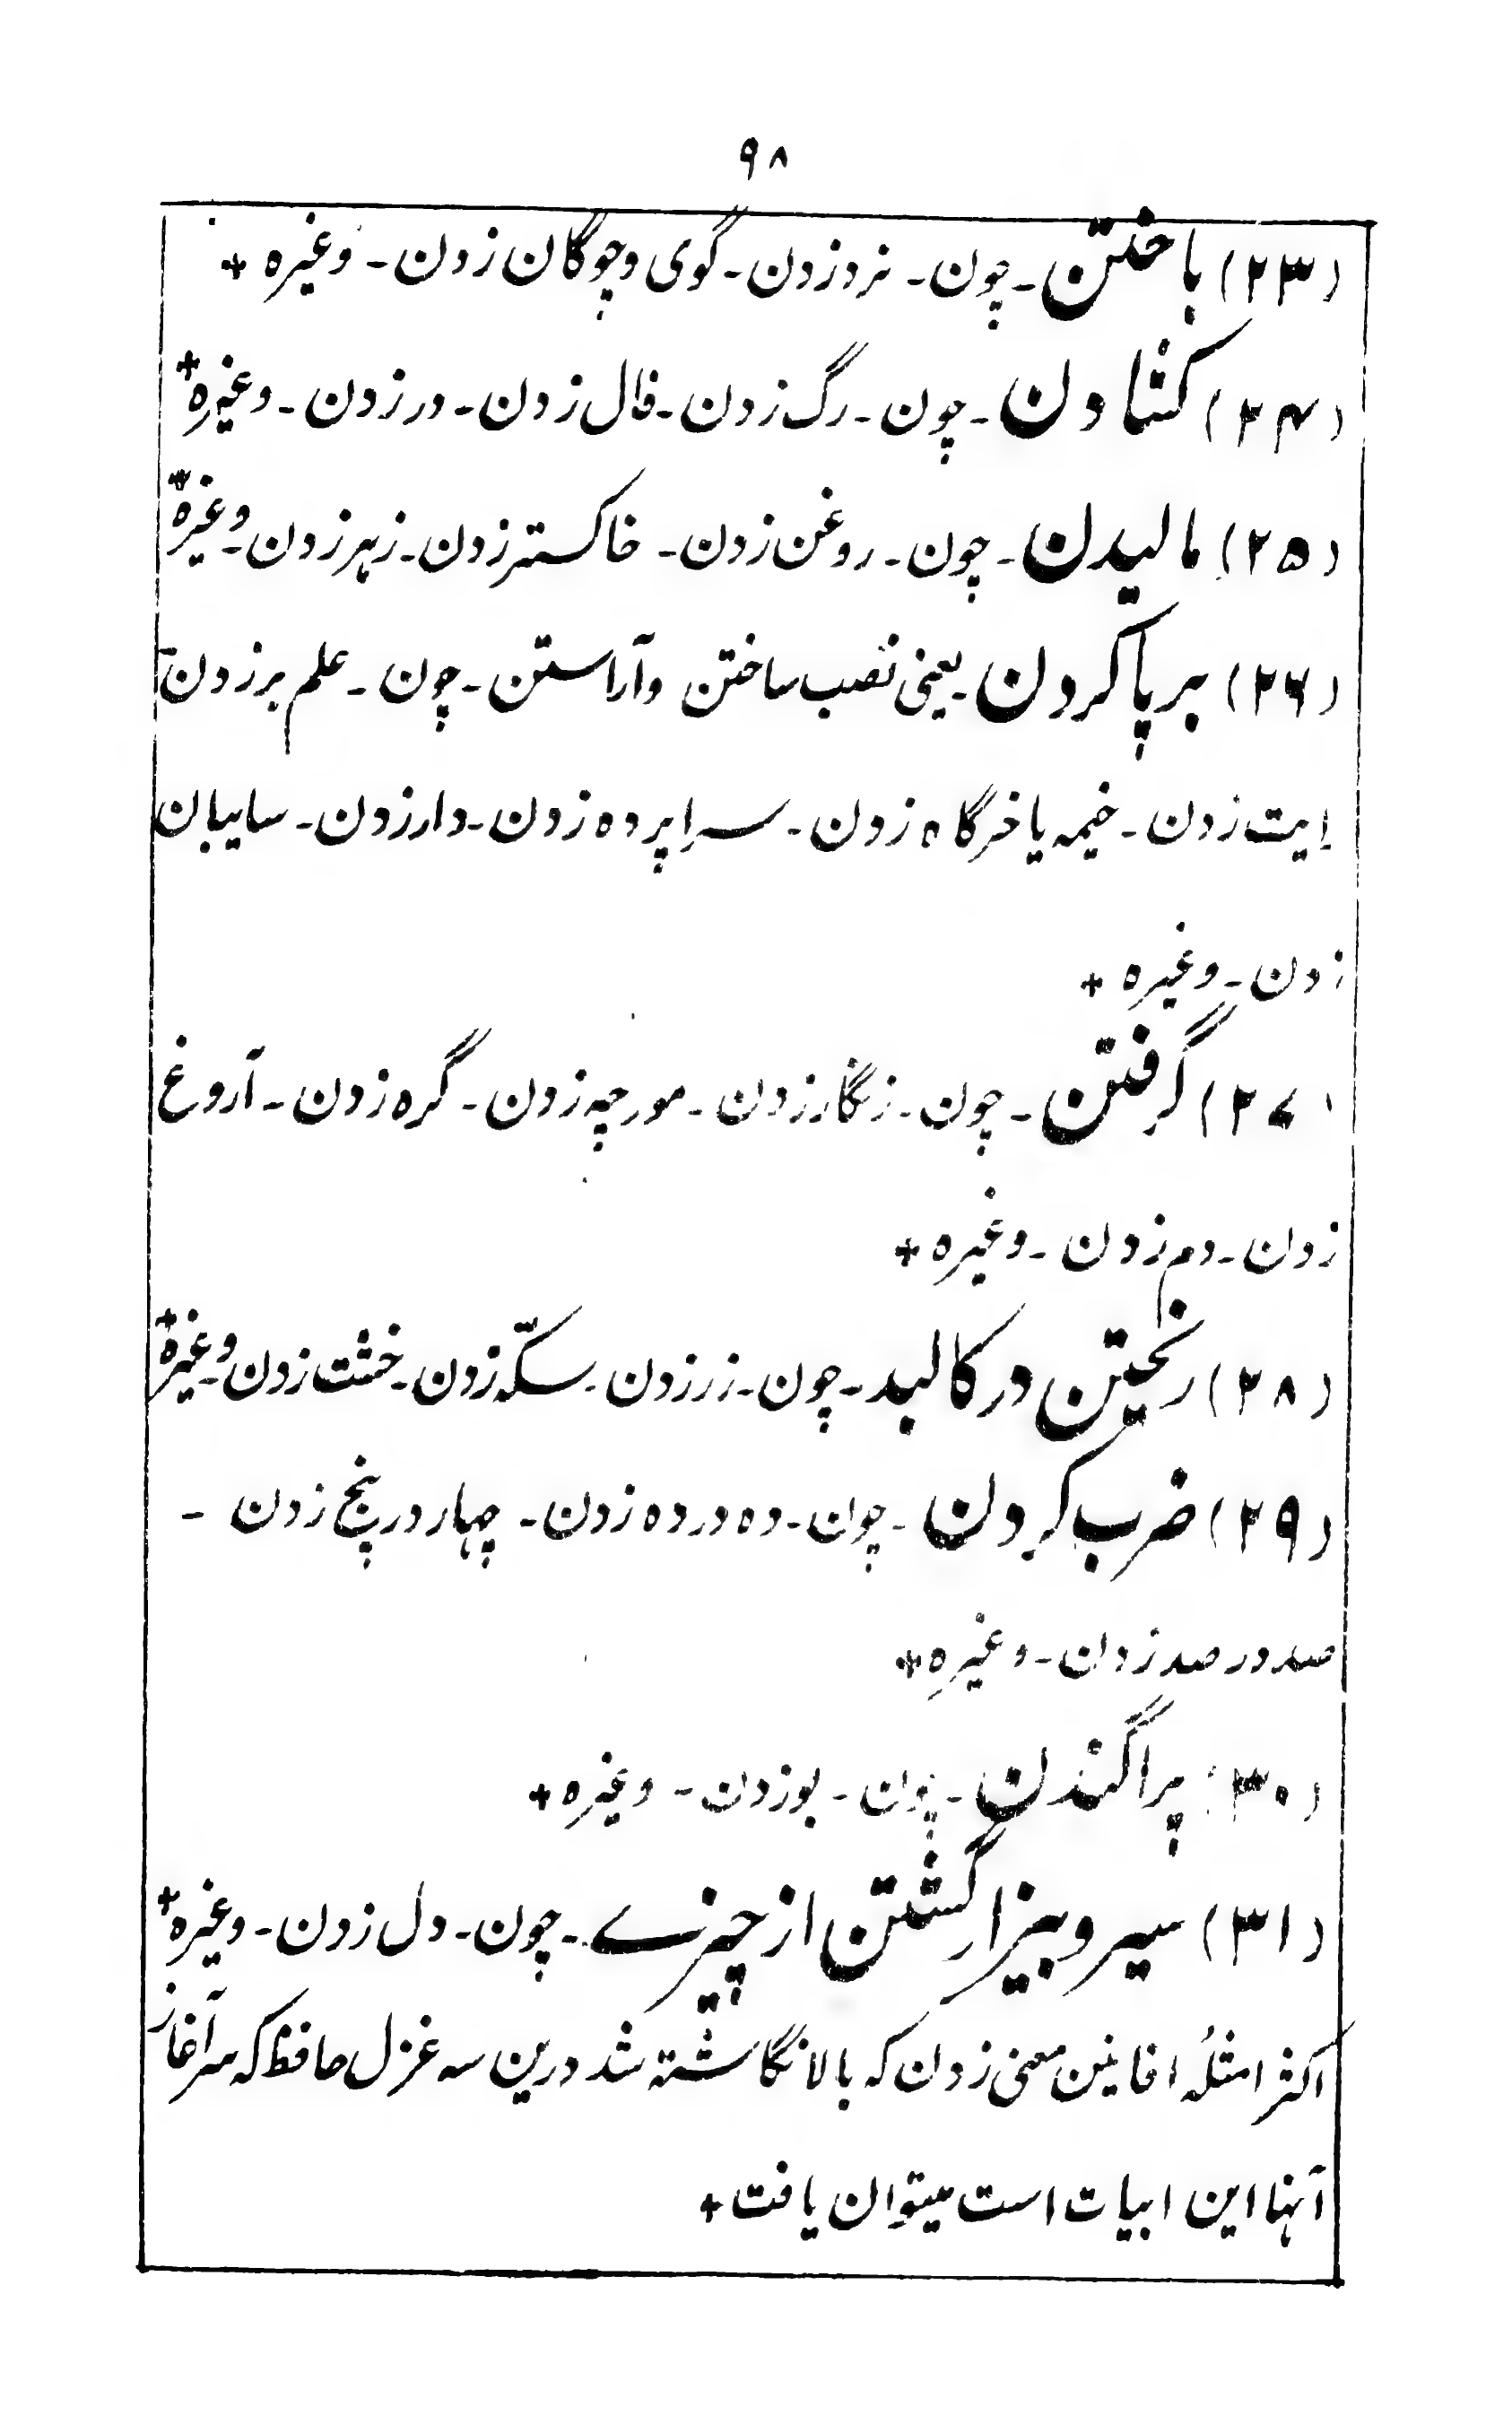 ۹۸
(۲۳) باختن - چون - نرد زدن - گوی و چوگان زدن - وغیره +
(۲۴) کشادن - چون - رگ زدن - فال زدن - در زدن - وغیره +
(۲۵) مالیدن - چون - روغن زدن - خاکستر زدن - زہر زدن - وغیرہ +
(۲۶) برپا کردن - یعنی نصب ساختن و آراستن - چون - علم بر زدن -
ایت زدن - خیمه یا خرگاه زدن - سراپرده زدن - دار زدن - سایبان
زدن - وغیره +
(۲۷) گرفتن - چون - زنگار زدن - مورچه زدن - گره زدن - آروغ
زدن - دم زدن - وغیره +
(۲۸) ریختن در کالبد - چون - زر زدن - سکّه زدن - خشت زدن - وغیره +
(۲۹) ضرب کردن - چون - ده در ده زدن - چہار در پنج زدن -
صد در صد زدن - وغیره +
(۳۰) پراگندن - چون - بو زدن - وغیره +
(۳۱) سیر و بیزار گشتن از چیزے - چون - دل زدن - وغیره +
اکثر امثلهٔ افانین معنی زدن که بالا نگاشته شد درین سه غزل حافظ که سرآغاز
آنہا این ابیات است میتوان یافت +